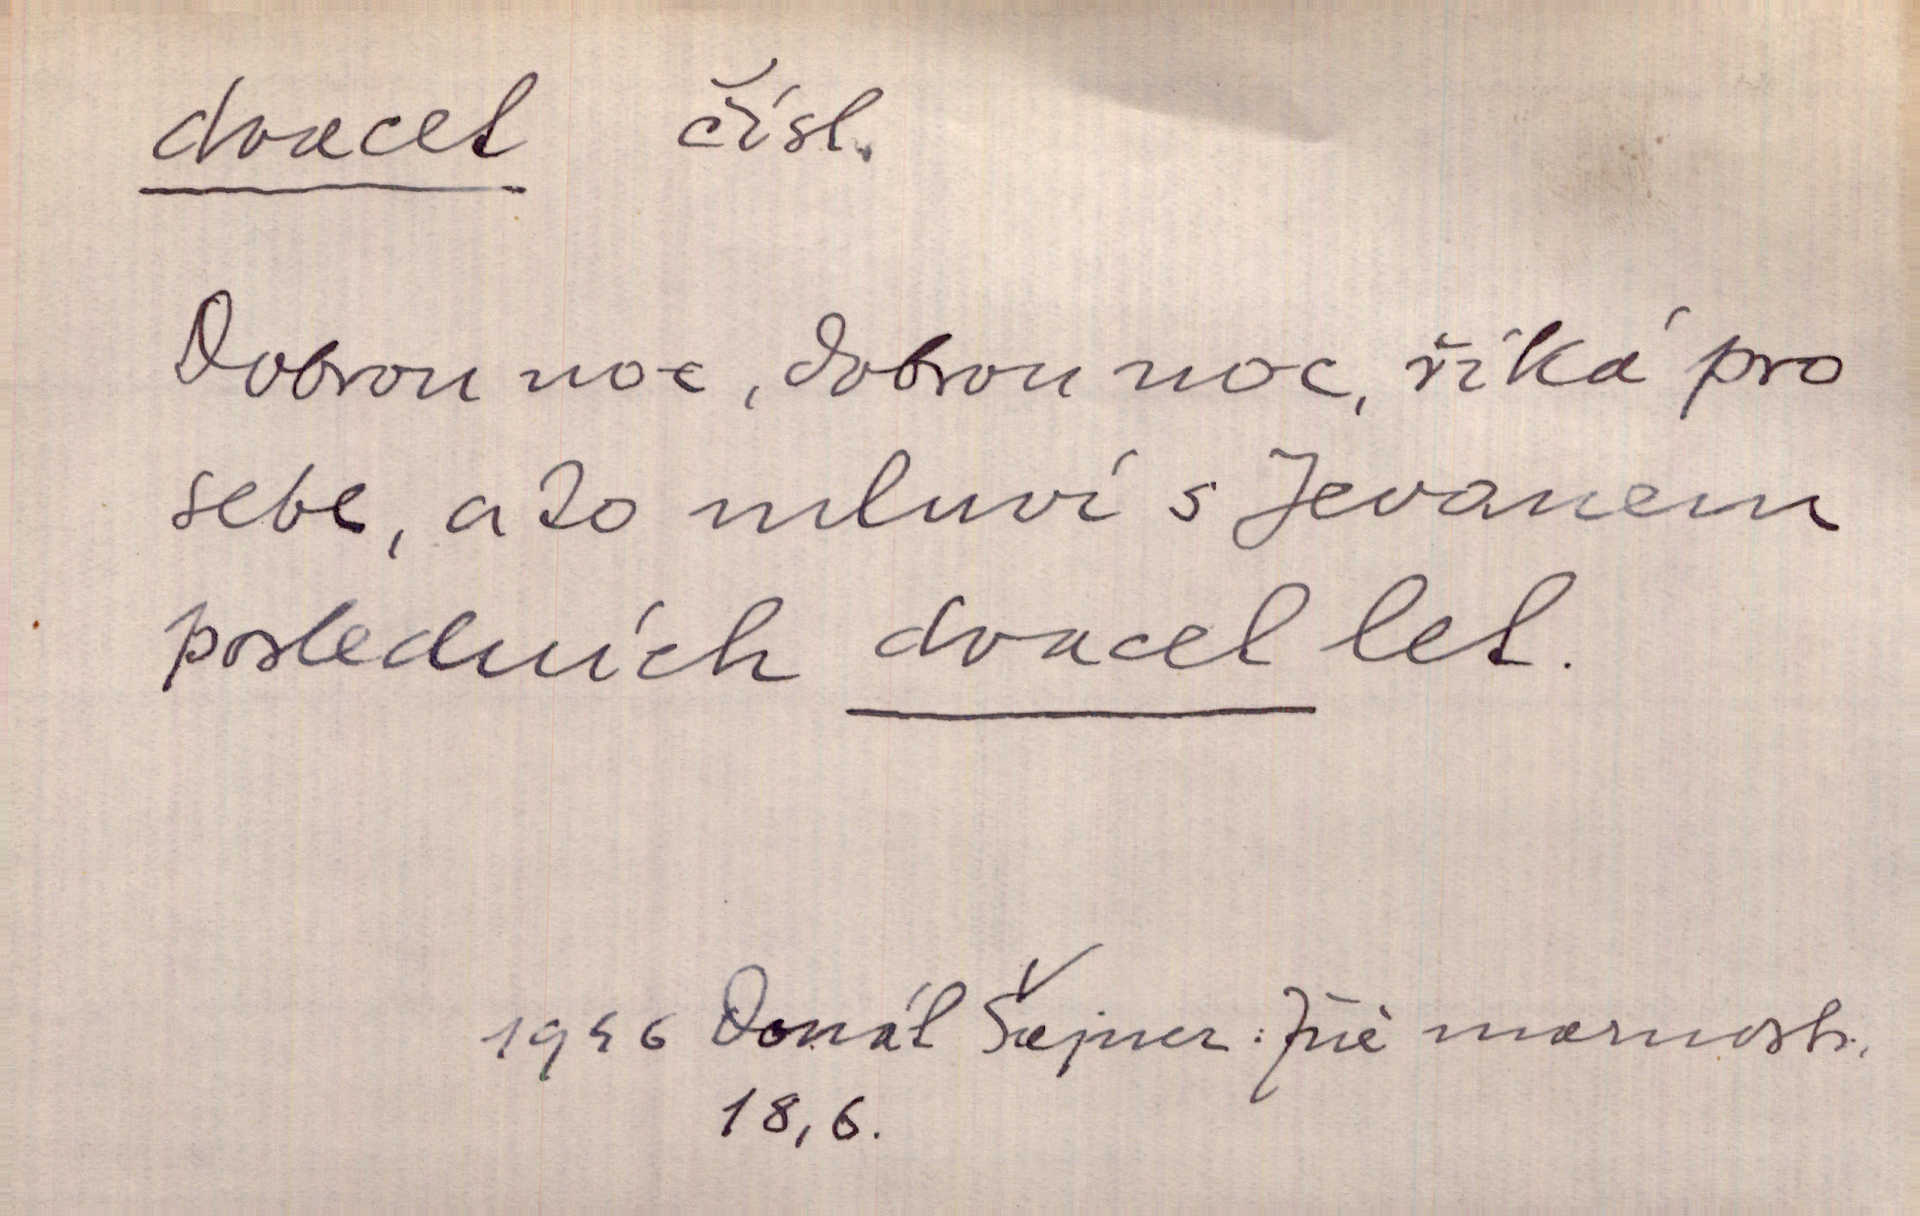 dvacet čísl.
Dobrou noc, dobrou noc, říká pro
sebe, a to mluví s Jevanem
posledních dvacet let.
1946 Donát Šajner: Jiné marnosti.
18,6.